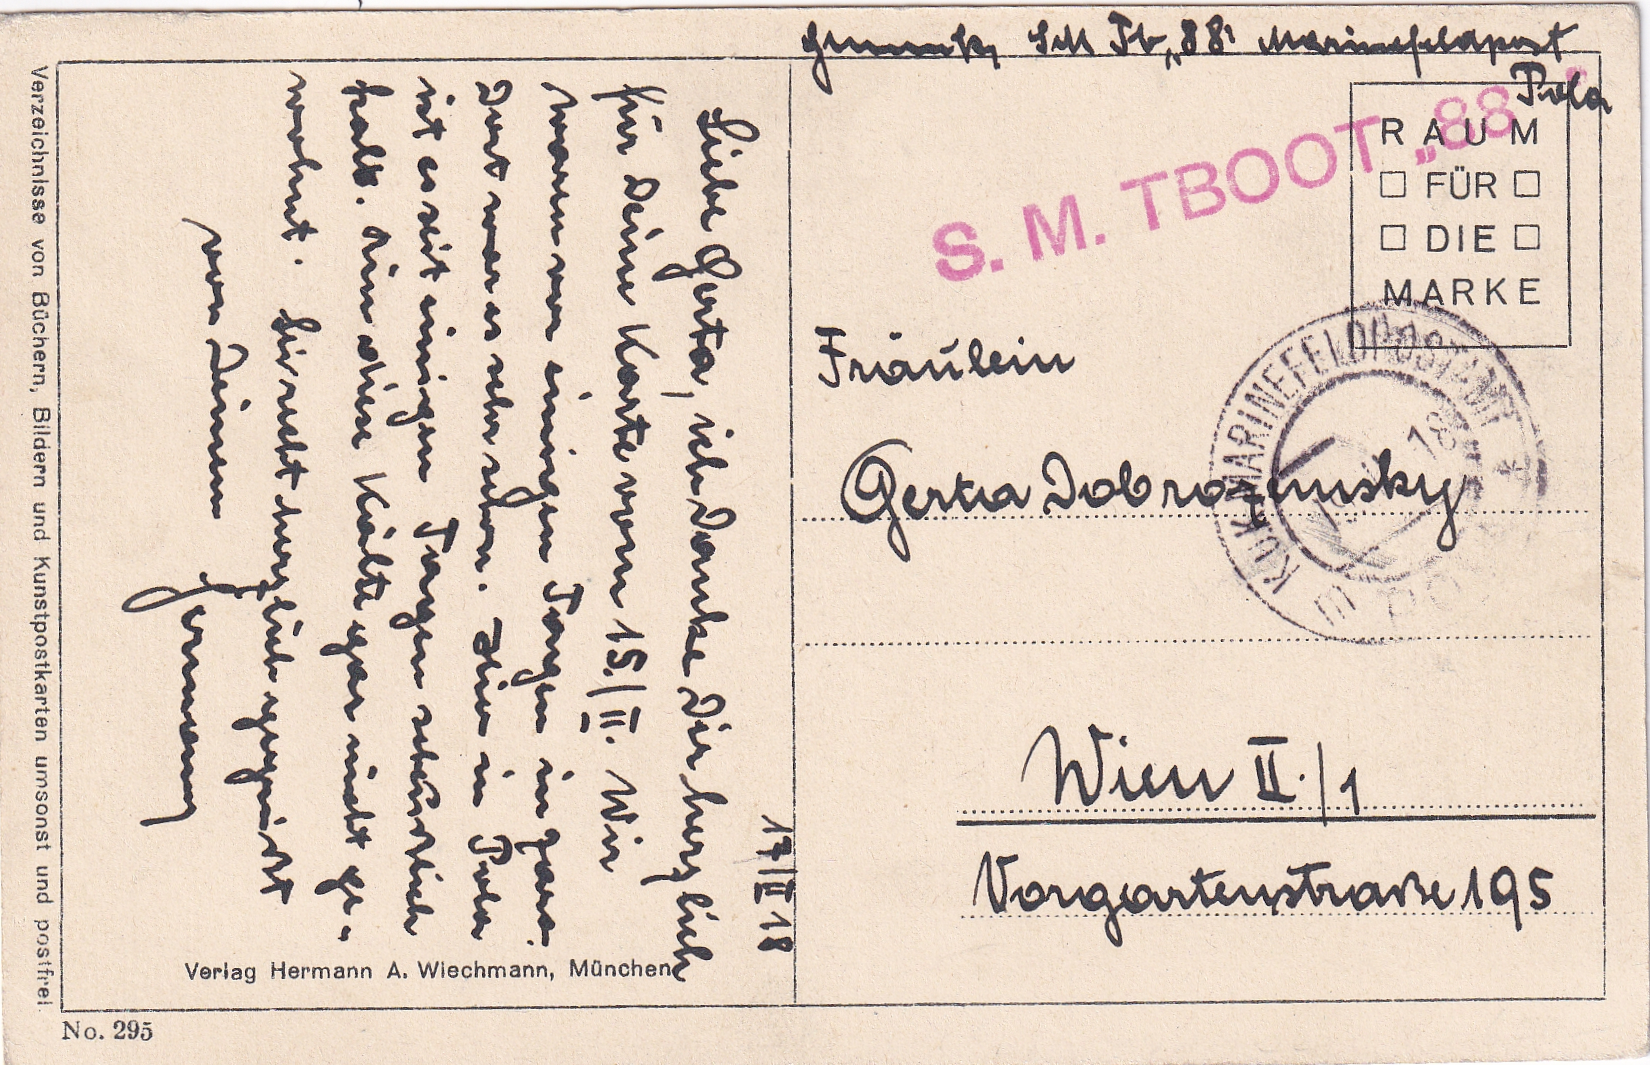 SM Tb „88" Marinefeldpost
Pola
S. M. TBOOT „88"
RAUM
FÜR
DIE
MARKE
K.u.K. MARINEFELDPOSTAMT
18
Fräulein
Gerta Dobrozemsky
Wien II./1
Vorgartenstraße 195
17/II 18
Liebe Gerta, ich Danke Dir herzlich
für Deine Karte vom 15./II. Wir
waren vor einigen Tagen in
Dort war es sehr schön. Hier in Pola
ist es seit einigen Tagen
kalt. Bin diese Kälte gar nicht ge-
wohnt. Sei recht herzlich gegrüßt
von Deinem
Hermann
Verlag Hermann A. Wiechmann, München
Verzeichnisse von Büchern, Bildern und Kunstpostkarten umsonst und postfrei
No. 295